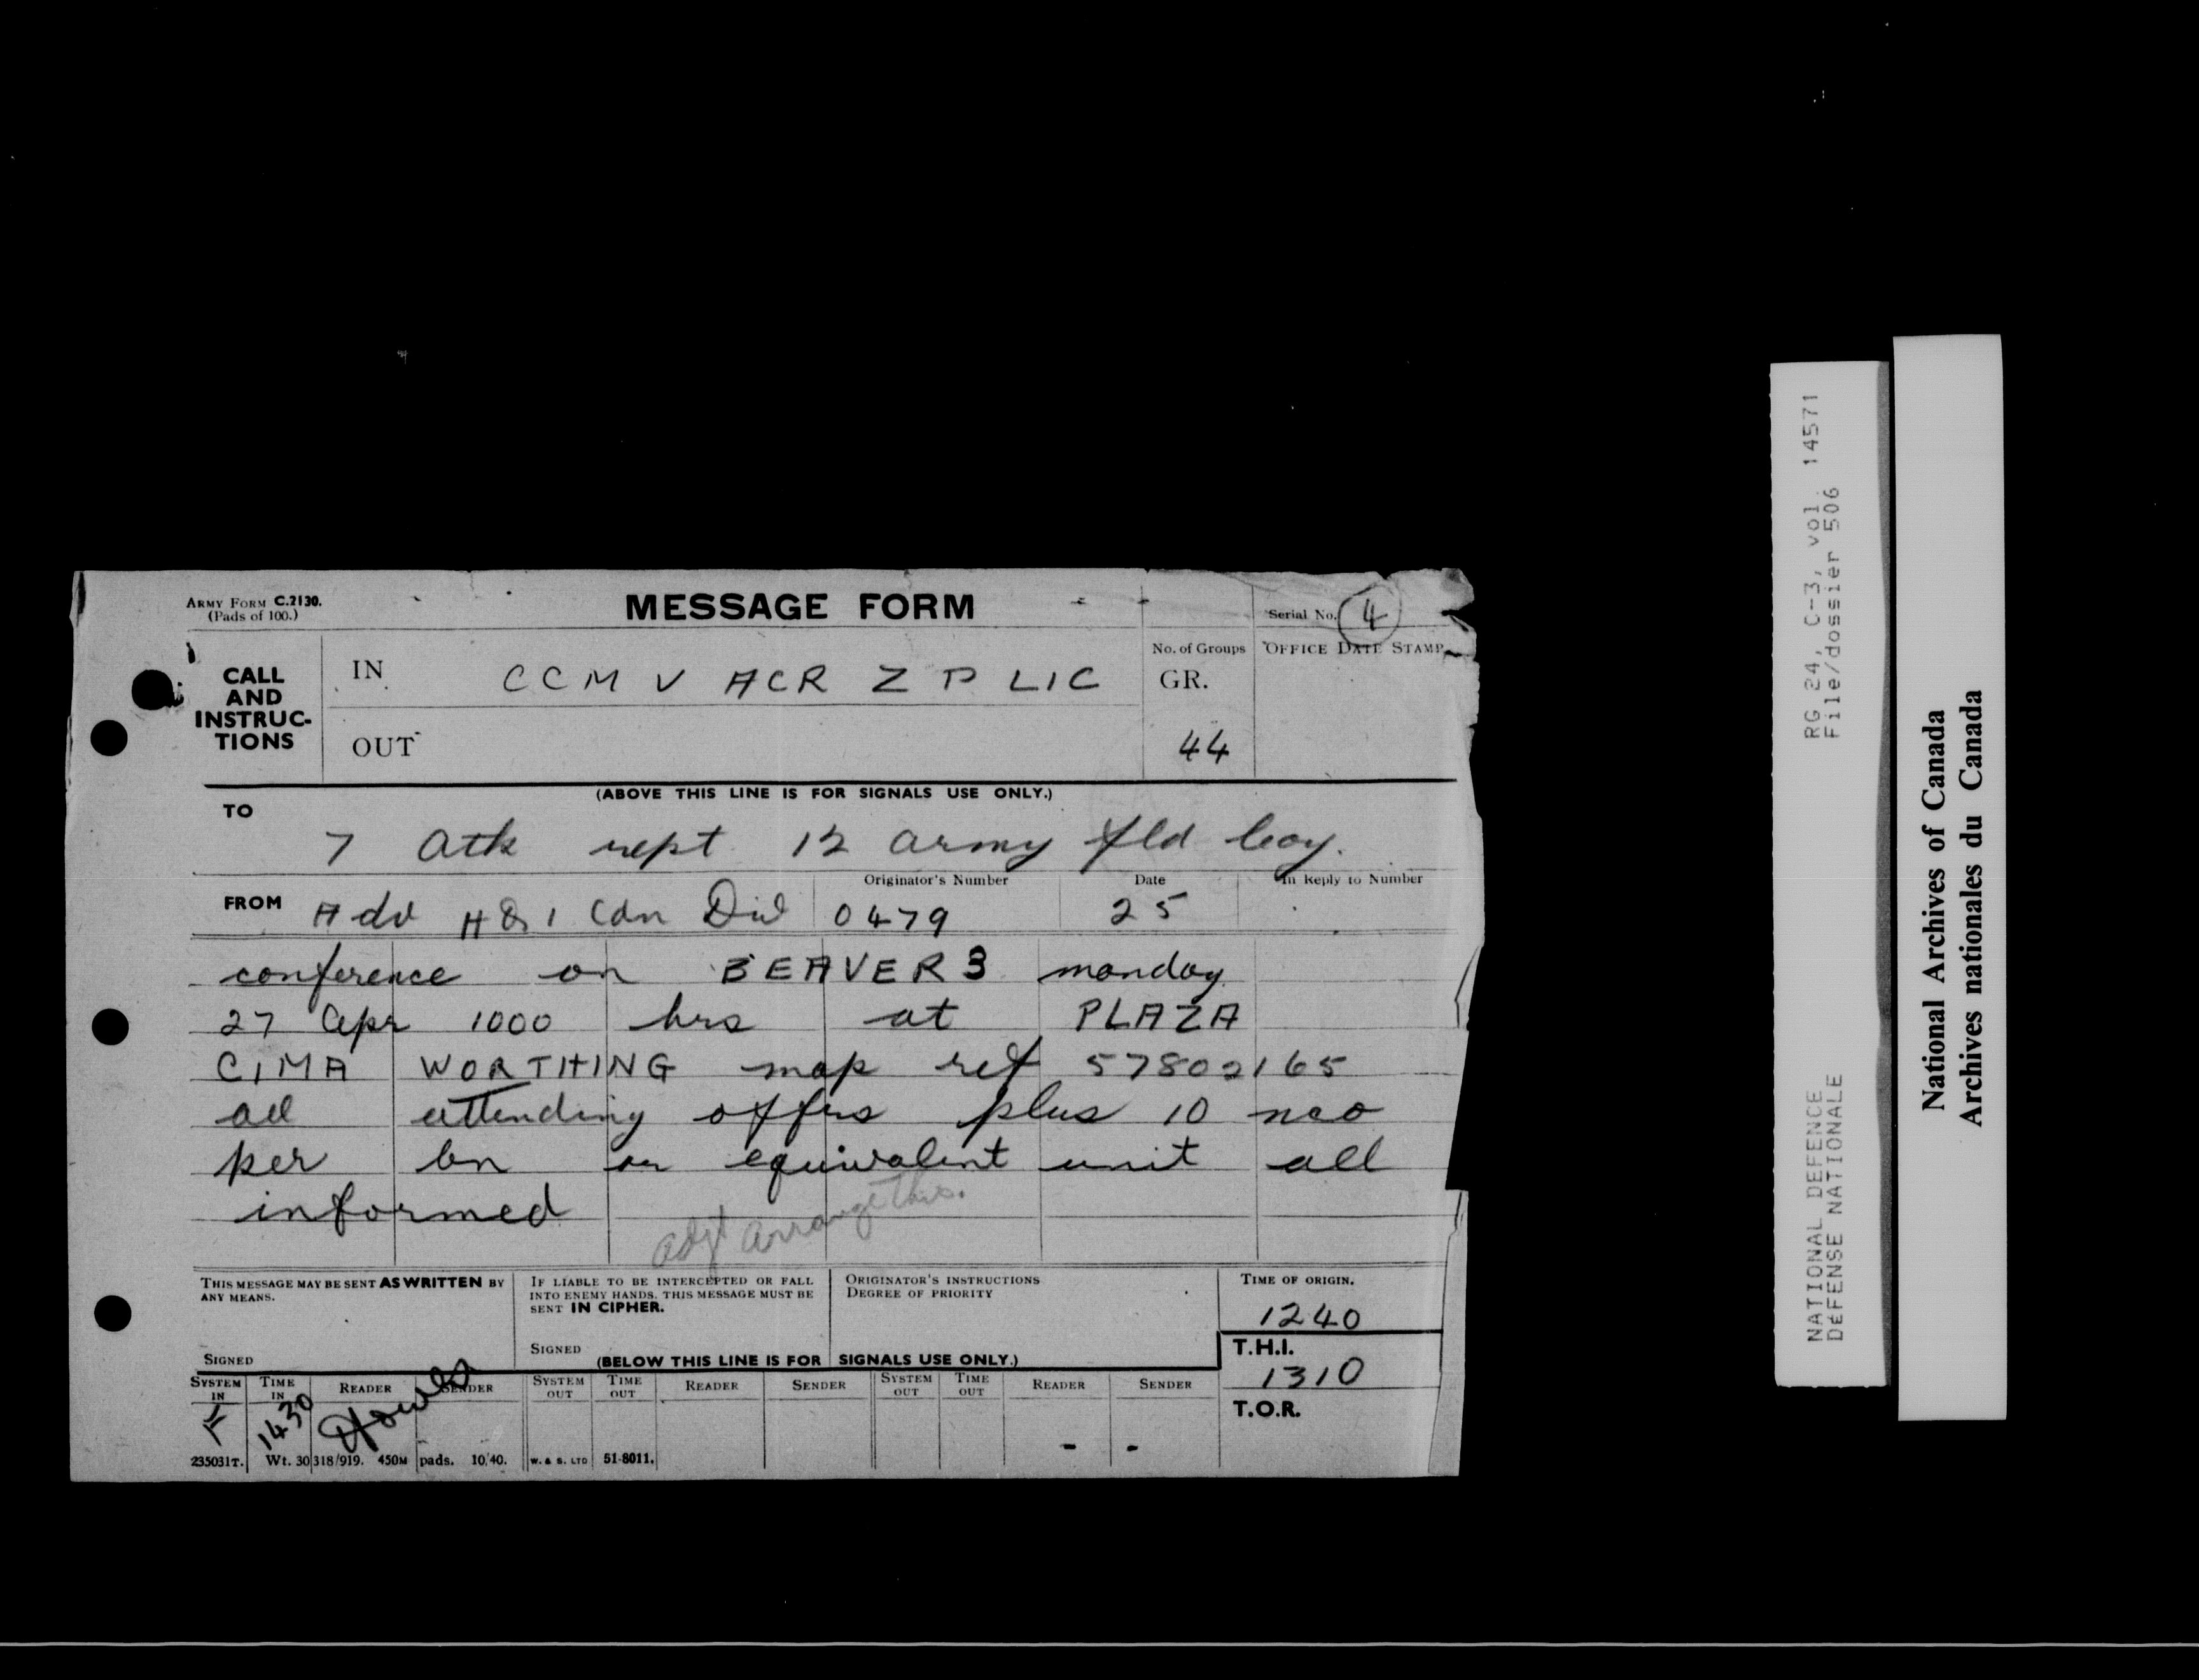 ARMY FORM C.2130.
(Pads of 100.)
MESSAGE FORM
Serial No. 4
CALL AND INSTRUC-TIONS
IN CCM V ACR Z P LIC
No. of Groups
GR.
44
OFFICE DATE STAMP
OUT
(ABOVE THIS LINE IS FOR SIGNALS USE ONLY.)
TO
7 Atk rept 12 army fld coy.
Originator's Number Date In Reply to Number
FROM Adv HQ 1 Cdn Div 0479 25
conference on BEAVER 3 monday
27 Apr 1000 hrs at PLAZA
CIMA WORTHING map ref 57802165
all attending offrs plus 10 nco
per bn or equivalent unit all
informed
adjt arrange this.
THIS MESSAGE MAY BE SENT AS WRITTEN BY
ANY MEANS.
SIGNED
IF LIABLE TO BE INTERCEPTED OR FALL
INTO ENEMY HANDS, THIS MESSAGE MUST BE
SENT IN CIPHER.
SIGNED
ORIGINATOR'S INSTRUCTIONS
DEGREE OF PRIORITY
TIME OF ORIGIN.
1240
T.H.I.
1310
T.O.R.
(BELOW THIS LINE IS FOR SIGNALS USE ONLY.)
SYSTEM IN TIME IN READER SENDER SYSTEM OUT TIME OUT READER SENDER SYSTEM OUT TIME OUT READER SENDER
1430
235031T. Wt. 30318/919. 450M pads. 10/40. W. & S. LTD 51-8011.
NATIONAL DEFENCE RG 24, C-3, vol. 14571
DEFENSE NATIONALE File/dossier 506
National Archives of Canada
Archives nationales du Canada